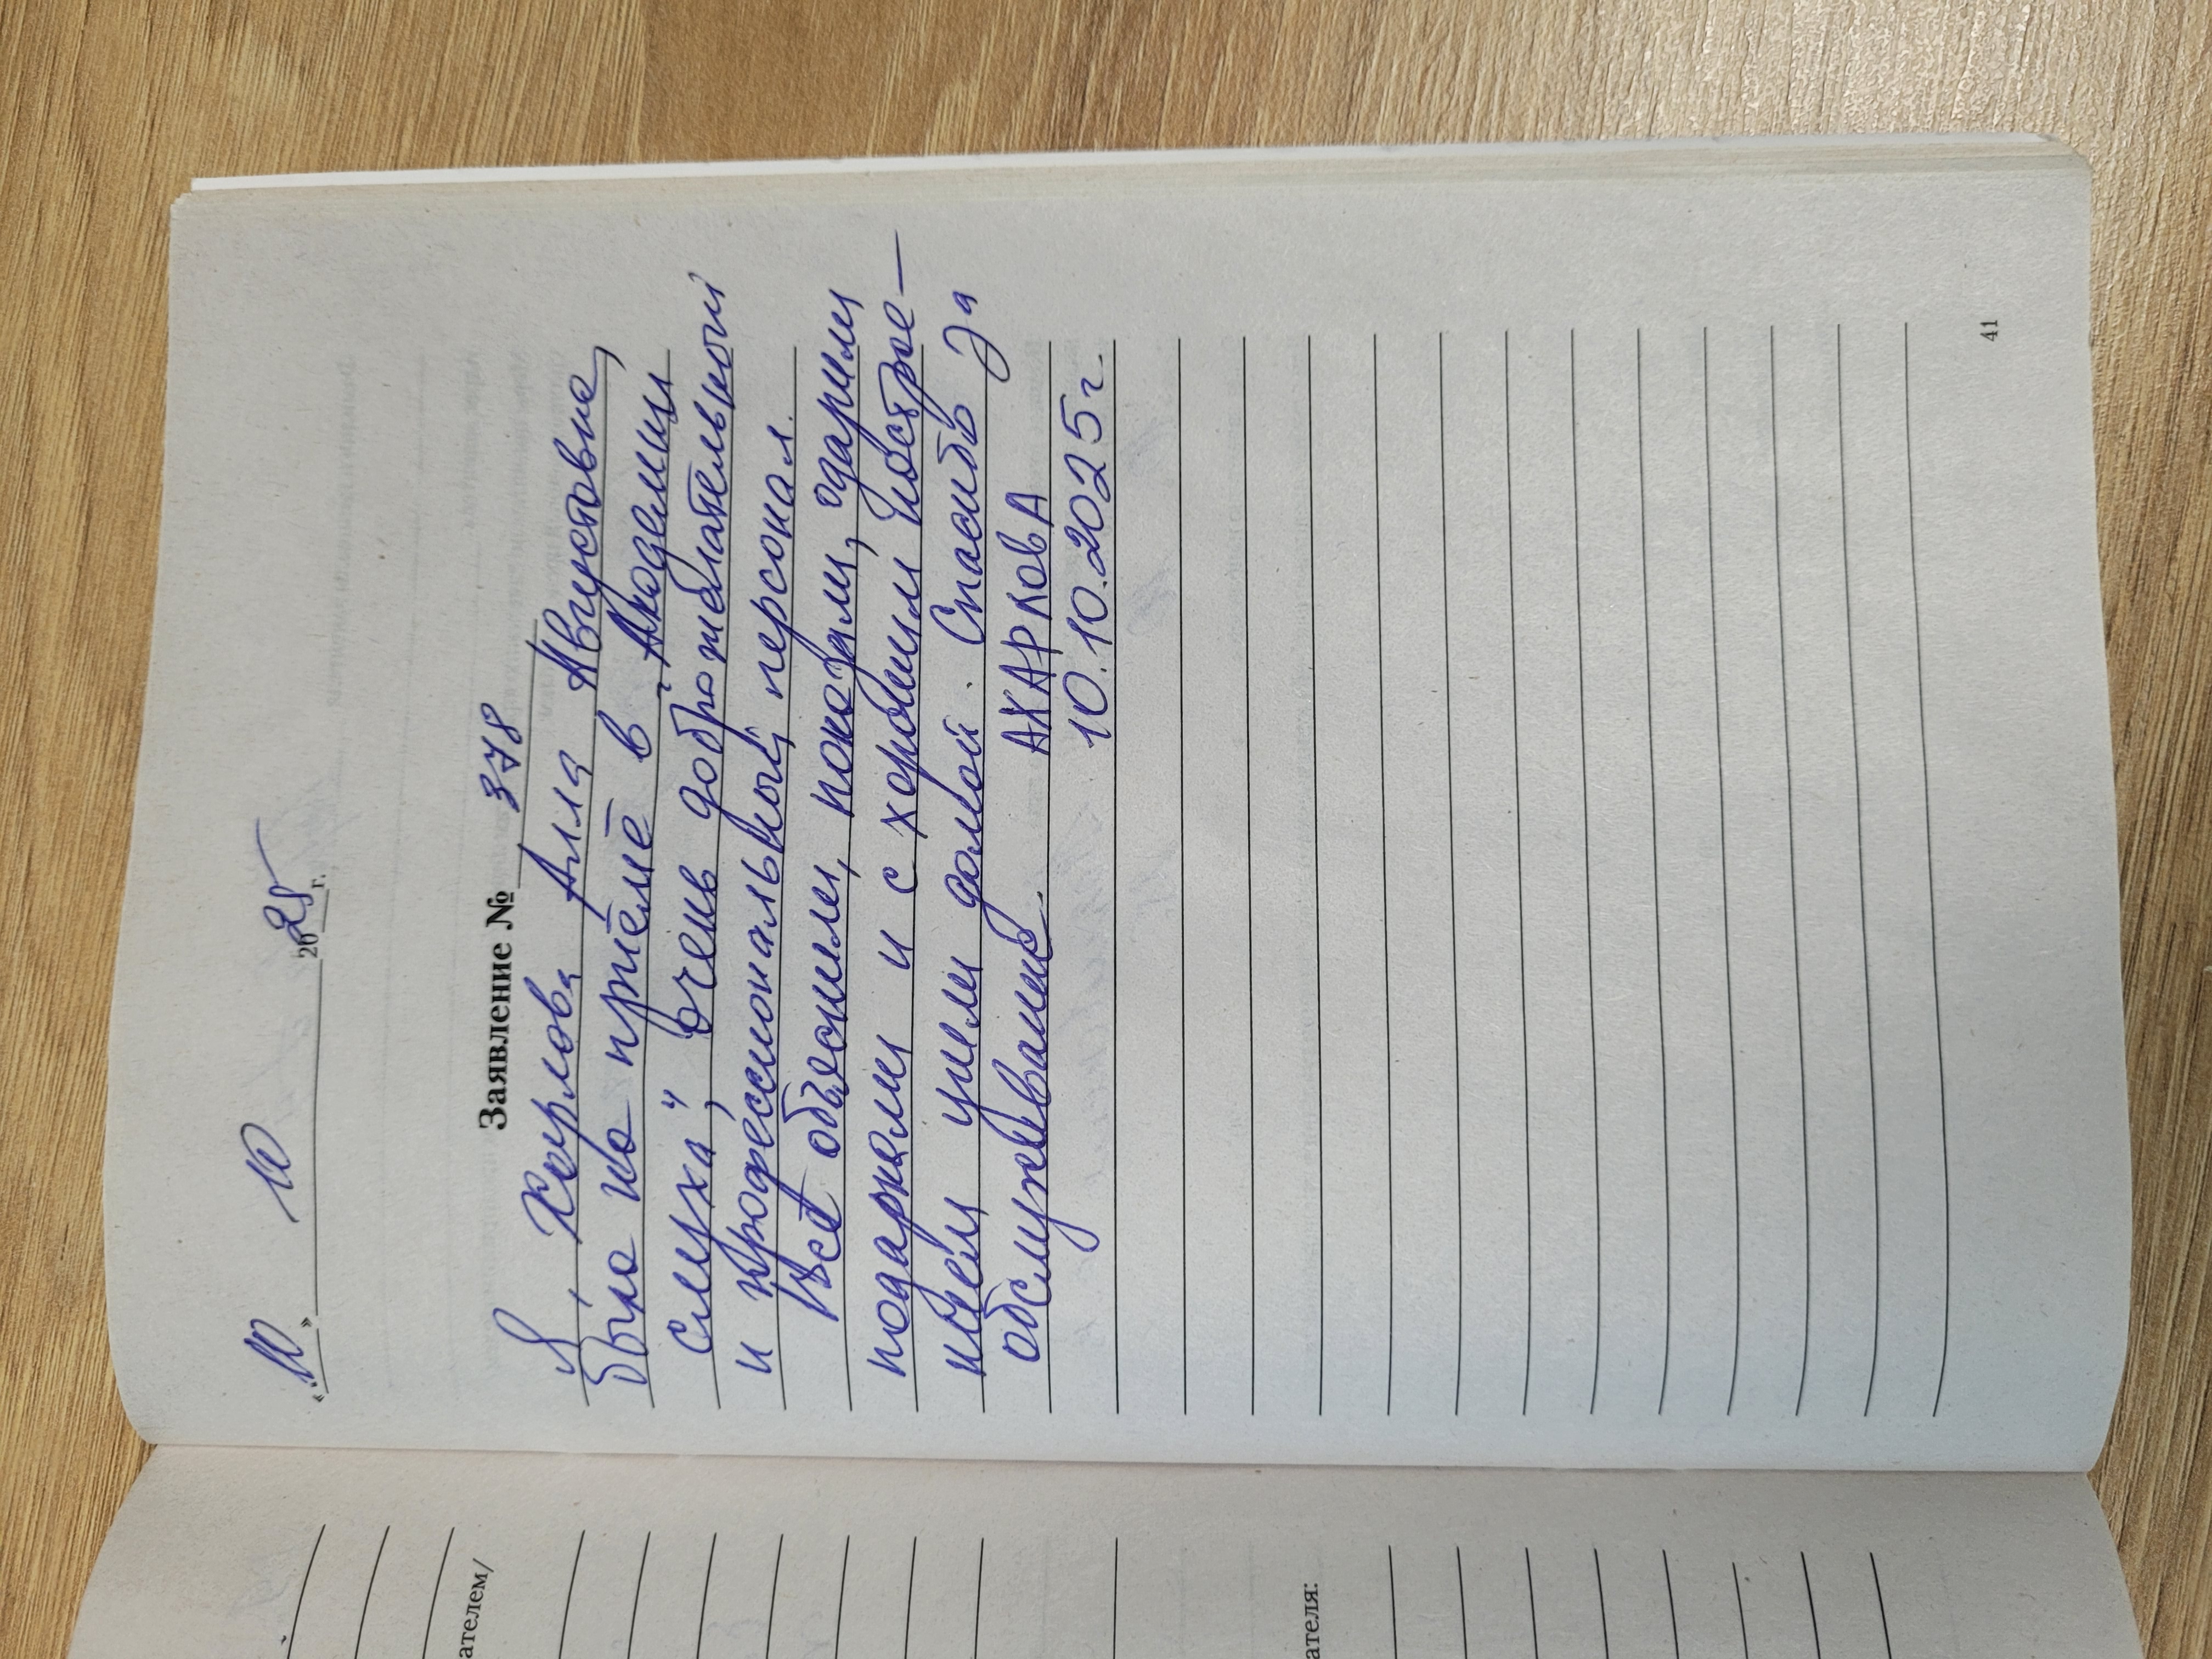 «10» 10 2025 г.
Заявление № 378
Я Харлова Алла Августовна,
была на приёме в "Академии
слуха", очень доброжелательный
и профессиональный персонал.
Всё объяснили, показали, одарили
подарками и с хорошим настрое-
нием ушли домой. Спасибо за
обслуживание. АХАРЛОВА
10.10.2025г.
41
ателем/
ателя: